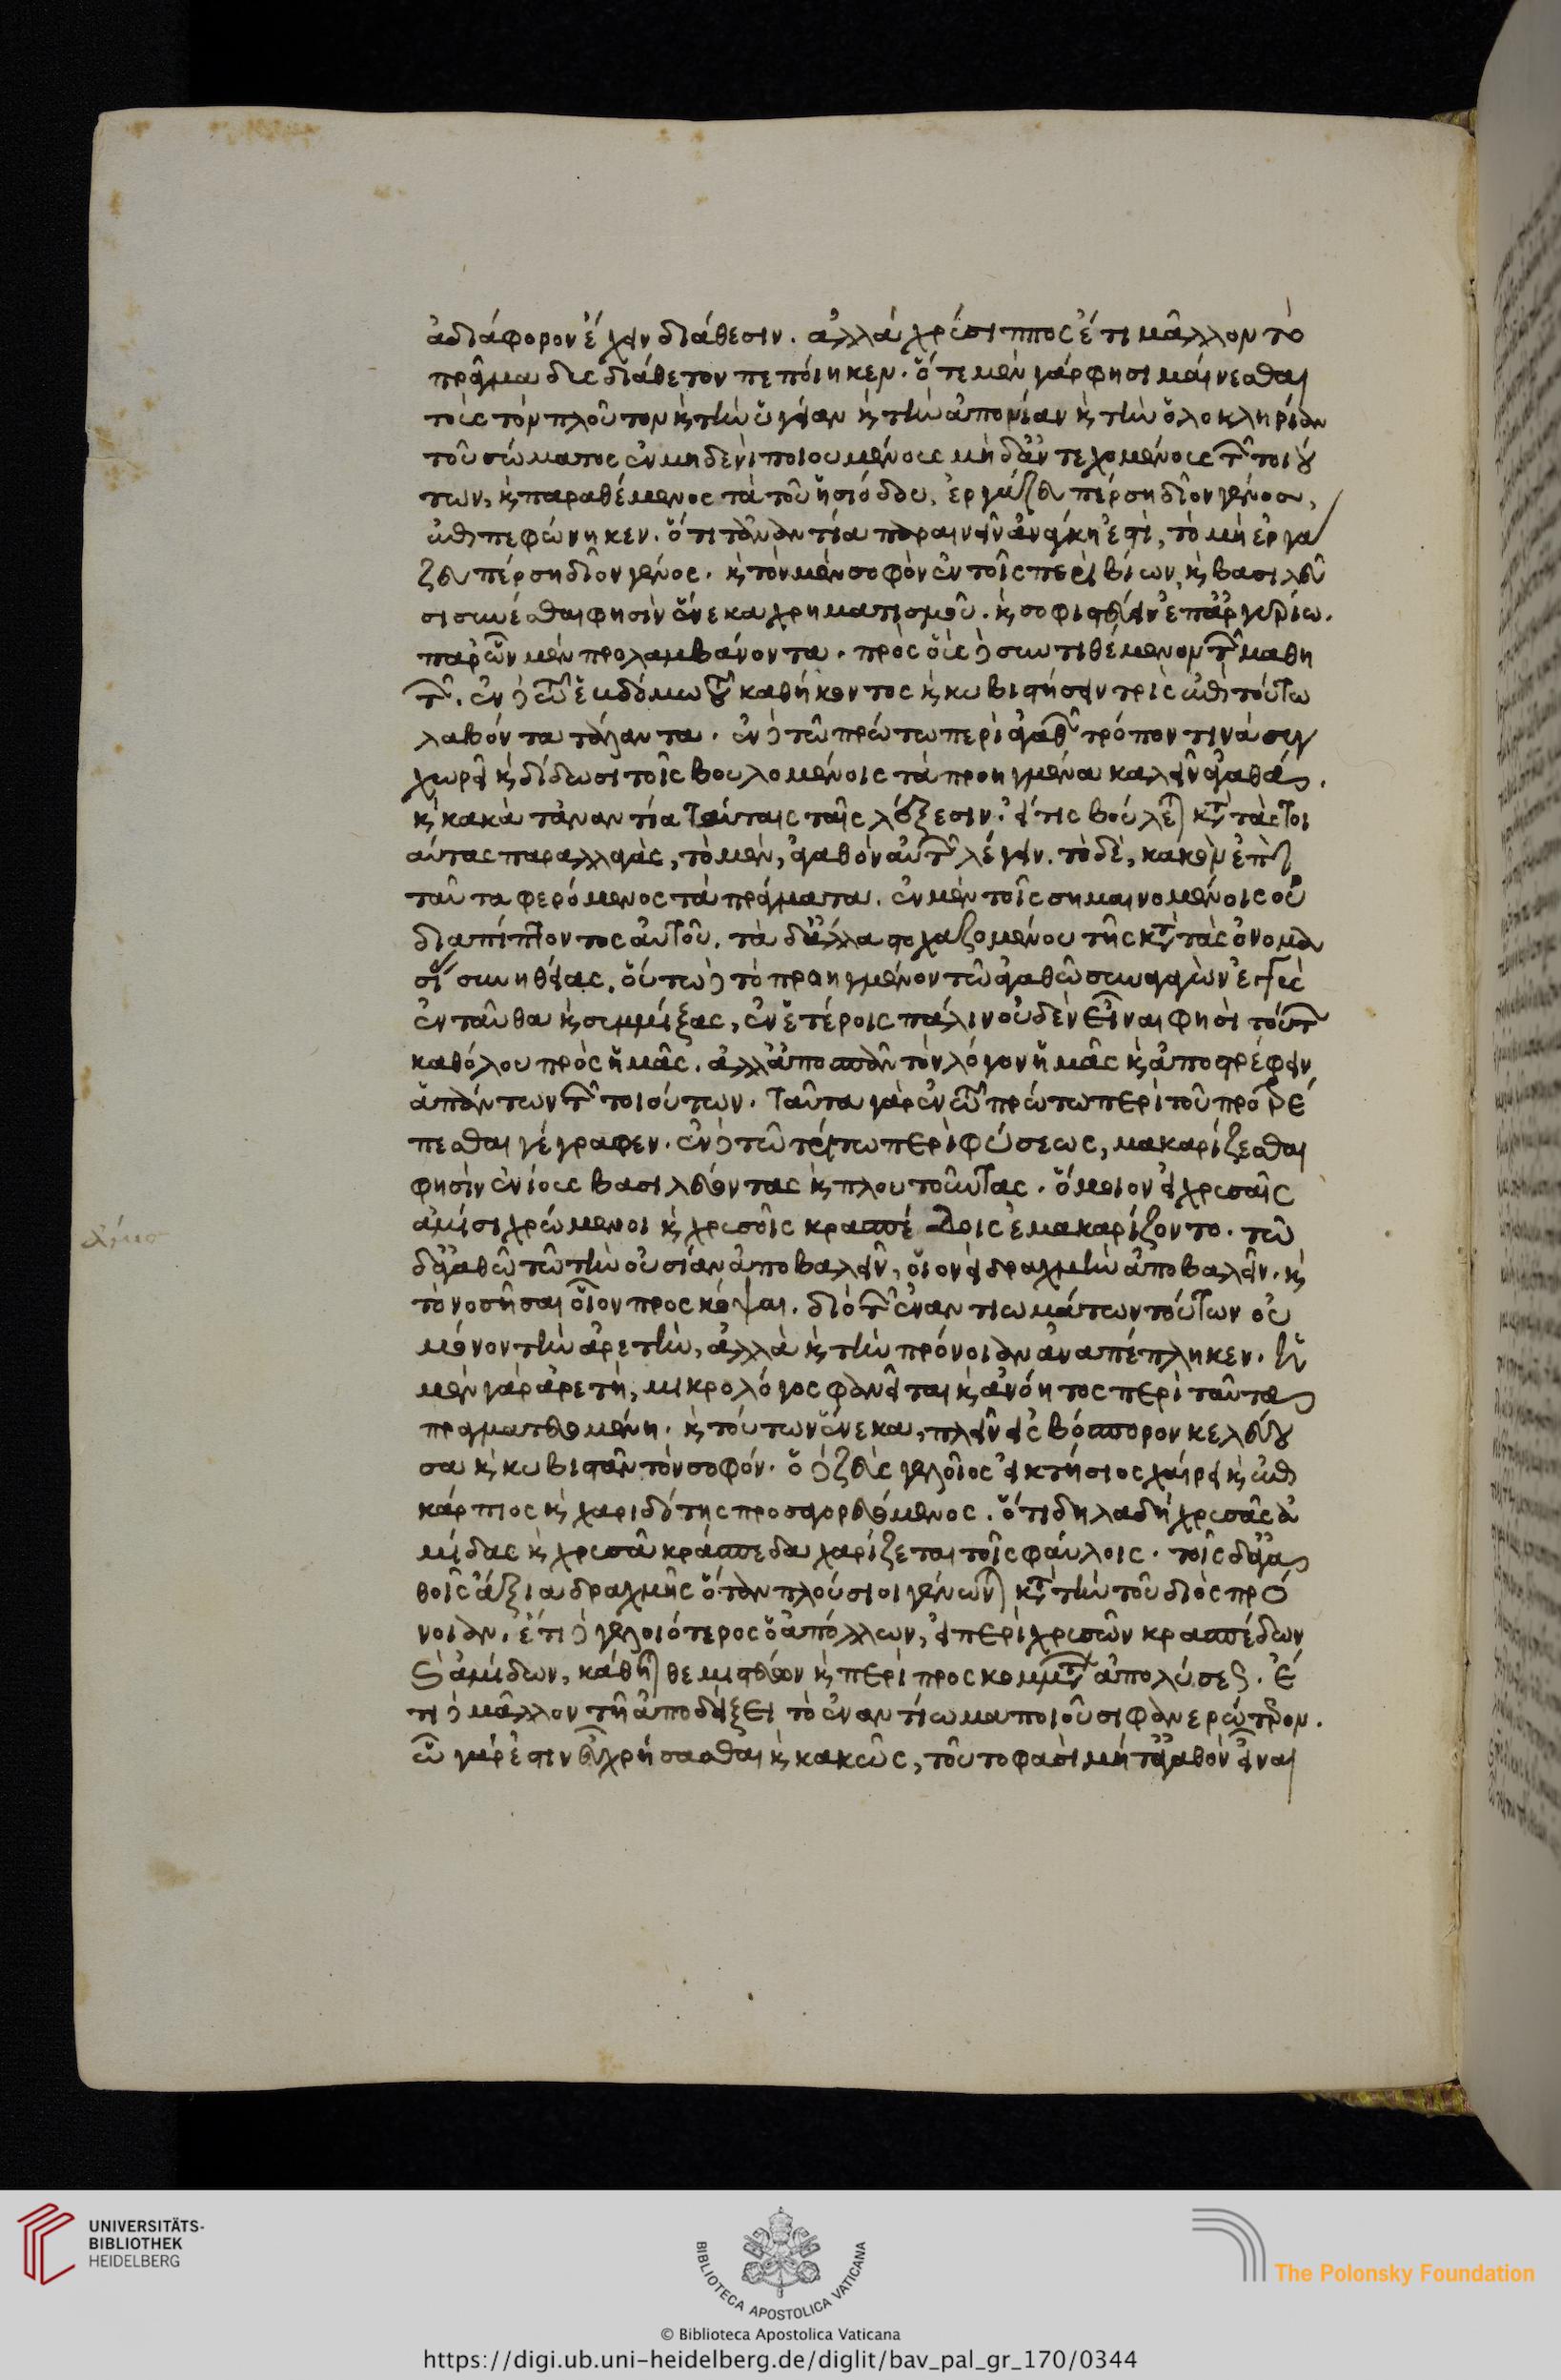 ἀδιάφορον ἔχειν διάθεσιν. ἀλλὰ χρύσιππος ἔτι μᾶλλον τὸ
πρᾶγμα δυσδιάθετον πεποίηκεν. ὅτε μὲν γάρ φησι μαίνεσθαι
τοὺς τὸν πλοῦτον κ τὴν ὑγείαν κ τὴν ἀπονίαν κ τὴν ὁλοκληρίαν
τοῦ σώματος ἐν μηδενὶ ποιουμένους μὴδ' ἀντεχομένους τῶν τοιού
των, κ παραθέμενος τὰ τοῦ ἡσιόδου, ἐργάζευ πέρση δῖον γένος,
ἐπιπεφώνηκεν. ὅτι τἀναντία παραινεῖν ἀνάγκη ἐστὶ, τὸ μὴ ἐργά
ζευ πέρση δῖον γένος. κ τὸν μὲν σοφὸν ἐν τοῖς περὶ βίων, κ βασιλεῦ
σι συνέσεσθαι φησὶν ἕνεκα χρηματισμοῦ. κ σοφιστεύειν ἐπ' ἀργυρίω.
παρ' ὧν μὲν προλαμβάνοντα. πρὸς οὓς δὲ συντιθέμενον τῶν μαθη
τῶν. ἐν δὲ τῶ ἑβδόμω τοῦ καθήκοντος κ κυβιστήσειν τρὶς ἐπὶ τούτω
λαβόντα τάλαντα. ἐν δὲ τῶ πρώτω περὶ ἀγαθῶν τρόπον τινὰ συγ
χωρεῖ κ δίδωσι τοῖς βουλομένοις τὰ προηγμένα καλεῖν ἀγαθὰ,
κ κακὰ τἀναντία ταύταις ταῖς λέξεσιν. εἴ τις βούλεται κατὰ τὰς τοι
αύτας παραλλαγὰς, τὸ μὲν, ἀγαθὸν αὐτῶν λέγειν. τὸ δὲ, κακὸν ἐπὶ
ταῦτα φερόμενος τὰ πράγματα. ἐν μὲν τοῖς σημαινομένοις οὐ
διαπίπτοντος αὐτοῦ. τὰ δ' ἄλλα στοχαζομένου τῆς κατὰ τὰς ὀνομα
σίας συνηθείας, οὕτω δὲ τὸ προηγμένον τῶ ἀγαθῶ συναγαγὼν ἐγγὺς
ἐνταῦθα κ συμμίξας, ἐν ἑτέροις πάλιν οὐδὲν εἶναι φησὶ τούτων
καθόλου πρὸς ἡμᾶς. ἀλλ' ἀποσπᾶν τὸν λόγον ἡμᾶς κ ἀποστρέφειν
ἁπάντων τῶν τοιούτων. ταῦτα γὰρ ἐν τῶ πρώτω περὶ τοῦ προτρέ
πεσθαι γέγραφεν. ἐν δὲ τῶ τρίτω περὶ φύσεως, μακαρίζεσθαι
φησὶν ἐνίους βασιλεύοντας κ πλουτοῦντας. ὅμοιον εἰ χρυσαῖς
ἀμίσι χρώμενοι κ χρυσοῖς κρασπέδοις ἐμακαρίζοντο. τῶ
δ' ἀγαθῶ τῶ τὴν οὐσίαν ἀποβαλεῖν, οἱονεὶ δραχμὴν ἀποβαλεῖν. κ
τὸ νοσῆσαι οἷον προσκόψαι. διὸ τῶν ἐναντιωμάτων τούτων οὐ
μόνον τὴν ἀρετὴν, ἀλλὰ κ τὴν πρόνοιαν ἀναπέπληκεν. ἡ
μὲν γὰρ ἀρετὴ, μικρολόγος φανεῖται κ ἀνόητος περὶ ταῦτα
πραγματευομένη. κ τούτων ἕνεκα, πλεῖν εἰς βόσπορον κελεύου
σα κ κυβιστᾶν τὸν σοφόν. ὁ δὲ ζεὺς γελοῖος εἰ κτήσιος χαίρει κ ἐπι
κάρπιος κ χαριδότης προσαγορευόμενος. ὅτι δηλαδὴ χρυσᾶς ἀ
μίδας κ χρυσᾶ κράσπεδα χαρίζεται τοῖς φαύλοις. τοῖς δ' ἀγα
θοῖς ἄξια δραχμῆς ὅταν πλούσιοι γένωνται κατὰ τὴν τοῦ διὸς πρό
νοιαν. ἔτι δὲ γελοιότερος ὁ ἀπόλλων, εἰ περὶ χρυσῶν κρασπέδων
κ ἀμίδων, κάθηται θεμιστεύων κ περὶ προσκομμάτων ἀπολύσεως. ἔ
τι δὲ μᾶλλον τῆ ἀποδείξει τὸ ἐναντίωμα ποιοῦσι φανερώτερον.
ὧ γάρ ἐστιν εὖ χρήσασθαι κ κακῶς, τοῦτο φασὶ μήτ' ἀγαθὸν εἶναι
UNIVERSITÄTS-
BIBLIOTHEK
HEIDELBERG
BIBLIOTECA APOSTOLICA VATICANA
The Polonsky Foundation
© Biblioteca Apostolica Vaticana
https://digi.ub.uni-heidelberg.de/diglit/bav_pal_gr_170/0344